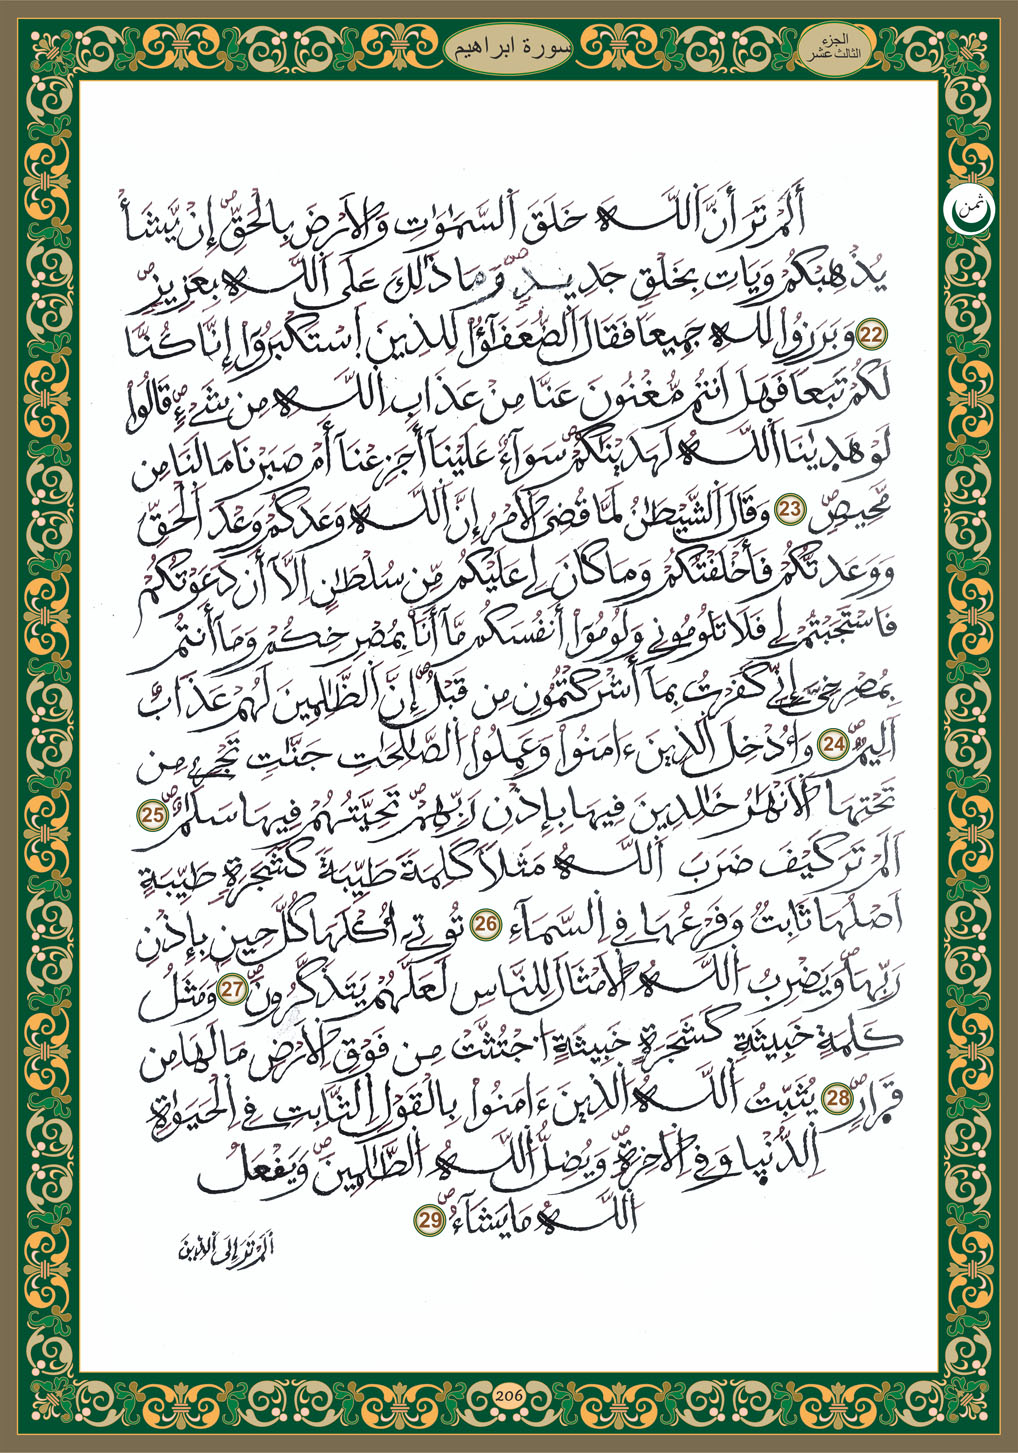 الجزء
الثالث عشر
سورة ابراهيم
ثمن
أَلَمْ تَرَ أَنَّ اَللَّهَ خَلَقَ اَلسَّمَٰوَٰتِ وَالَارْضَ بِالْحَقِّ إِنْ يَّشَأْ
يُذْهِبْكُمْ وَيَاتِ بِخَلْقٍ جَدِيدٍ وَمَا ذَٰلِكَ عَلَى اَللَّهِ بِعَزِيزٍ
22 وَبَرَزُواْ لِلهِ جَمِيعاً فَقَالَ اَلضُّعَفَٰٓؤُاْ لِلذِينَ اَسْتَكْبَرُوٓاْ إِنَّا كُنَّا
لَكُمْ تَبَعاً فَهَلَ اَنتُم مُّغْنُونَ عَنَّا مِنْ عَذَابِ اِللَّهِ مِن شَےْءٍ قَالُواْ
لَوْ هَدَيٰنَا اَللَّهُ لَهَدَيْنَٰكُمْ سَوَآءٌ عَلَيْنَآ أَجَزِعْنَآ أَمْ صَبَرْنَا مَا لَنَا مِن
مَّحِيصٍ 23 وَقَالَ اَلشَّيْطَٰنُ لَمَّا قُضِيَ اَلَامْرُ إِنَّ اَللَّهَ وَعَدَكُمْ وَعْدَ اَلْحَقِّ
وَوَعَدتُّكُمْ فَأَخْلَفْتُكُمْ وَمَا كَانَ لِے عَلَيْكُم مِّن سُلْطَٰنٍ اِلَّآ أَن دَعَوْتُكُمْ
فَاسْتَجَبْتُمْ لِے فَلَا تَلُومُونِے وَلُومُوٓاْ أَنفُسَكُم مَّآ أَنَا بِمُصْرِخِكُمْ وَمَآ أَنتُم
بِمُصْرِخِيَّ إِنِّے كَفَرْتُ بِمَآ أَشْرَكْتُمُونِ مِن قَبْلُ إِنَّ اَلظَّٰلِمِينَ لَهُمْ عَذَابٌ
اَلِيمٌ 24 وَأُدْخِلَ اَلذِينَ ءَامَنُواْ وَعَمِلُواْ اَلصَّٰلِحَٰتِ جَنَّٰتٍ تَجْرِے مِن
تَحْتِهَا اَلَانْهَٰرُ خَٰلِدِينَ فِيهَا بِإِذْنِ رَبِّهِمْ تَحِيَّتُهُمْ فِيهَا سَلَٰمٌ 25
اَلَمْ تَرَ كَيْفَ ضَرَبَ اَللَّهُ مَثَلاً كَلِمَةً طَيِّبَةً كَشَجَرَةٍ طَيِّبَةٍ
اَصْلُهَا ثَابِتٌ وَفَرْعُهَا فِے اِلسَّمَآءِ 26 تُوتِےٓ أُكْلَهَا كُلَّ حِينٍ بِإِذْنِ
رَبِّهَا وَيَضْرِبُ اَللَّهُ اَلَامْثَالَ لِلنَّاسِ لَعَلَّهُمْ يَتَذَكَّرُونَ 27 وَمَثَلُ
كَلِمَةٍ خَبِيثَةٍ كَشَجَرَةٍ خَبِيثَةٍ اجْتُثَّتْ مِن فَوْقِ اِلَارْضِ مَا لَهَا مِن
قَرَارٍ 28 يُثَبِّتُ اَللَّهُ اُلذِينَ ءَامَنُواْ بِالْقَوْلِ اِلثَّابِتِ فِے اِلْحَيَوٰةِ
اِلدُّنْيَا وَفِے اِلَاخِرَةِ وَيُضِلُّ اُللَّهُ اُلظَّٰلِمِينَ وَيَفْعَلُ
اُللَّهُ مَا يَشَآءُ 29
أَلَمْ تَرَ إِلَى اَلذِينَ
206